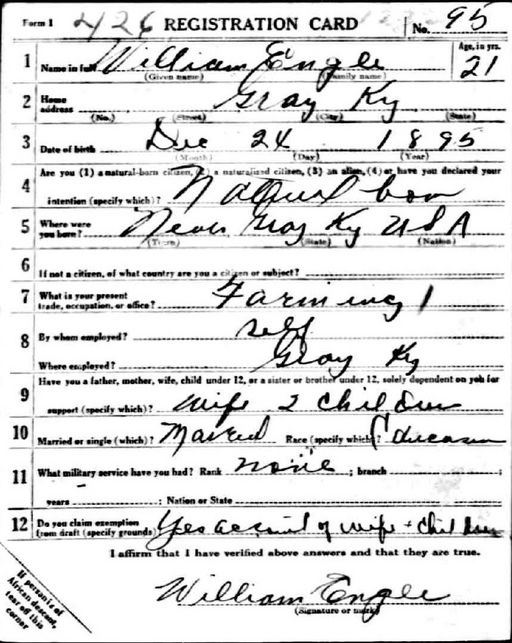 Form 1 426 REGISTRATION CARD No. 95
1 Name in full William Engle Age, in yrs. 21
(Given name) (Family name)
2 Home address Gray Ky
(No.) (Street) (City) (State)
3 Date of birth Dec 24 1895
(Month) (Day) (Year)
4 Are you (1) a natural-born citizen, (2) a naturalized citizen, (3) an alien, (4) or have you declared your
intention (specify which)? Natural born
5 Where were you born? Near Gray Ky USA
(Town) (State) (Nation)
6 If not a citizen, of what country are you a citizen or subject?
7 What is your present trade, occupation, or office? Farming 1
8 By whom employed? self
Where employed? Gray Ky
9 Have you a father, mother, wife, child under 12, or a sister or brother under 12, solely dependent on you for
support (specify which)? wife 2 children
10 Married or single (which)? Married Race (specify which)? Caucasian
11 What military service have you had? Rank none ; branch ;
years ; Nation or State
12 Do you claim exemption from draft (specify grounds)? Yes account of wife + children
I affirm that I have verified above answers and that they are true.
William Engle
(Signature or mark)
If person is of
African descent,
tear off this
corner